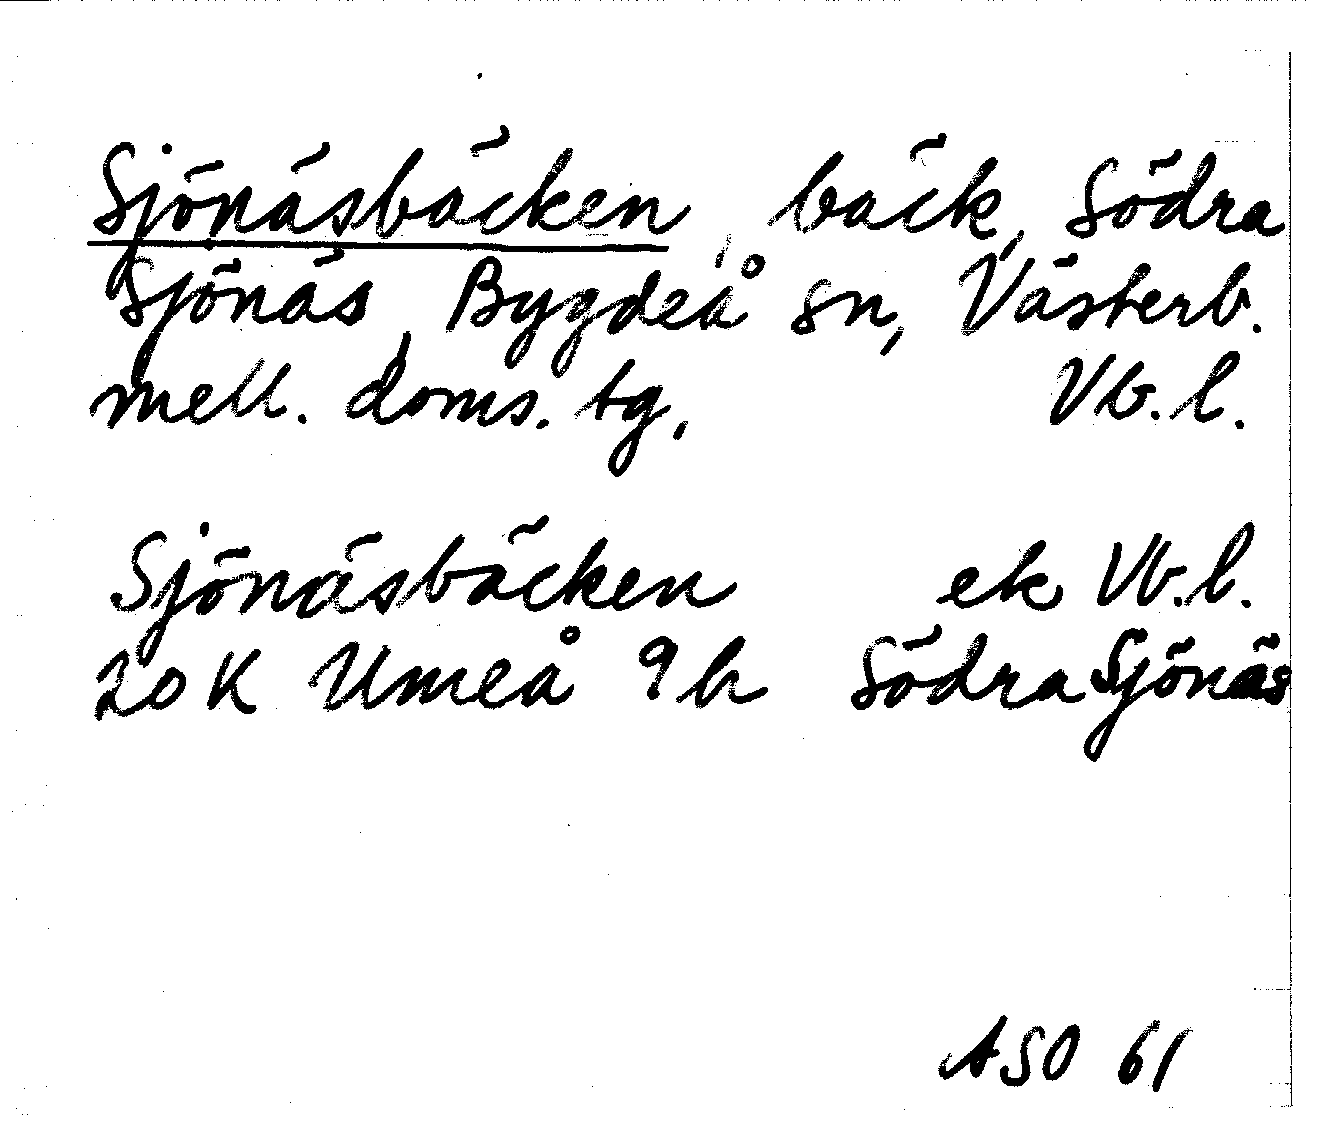 Sjönäsbäcken, bäck, Södra
Sjönäs, Bygdeå sn, Västerb.
mell. doms. tg, Vb.l.
Sjönäsbäcken ek Vb.l.
20K Umeå 9h Södra Sjönäs
ASO 61